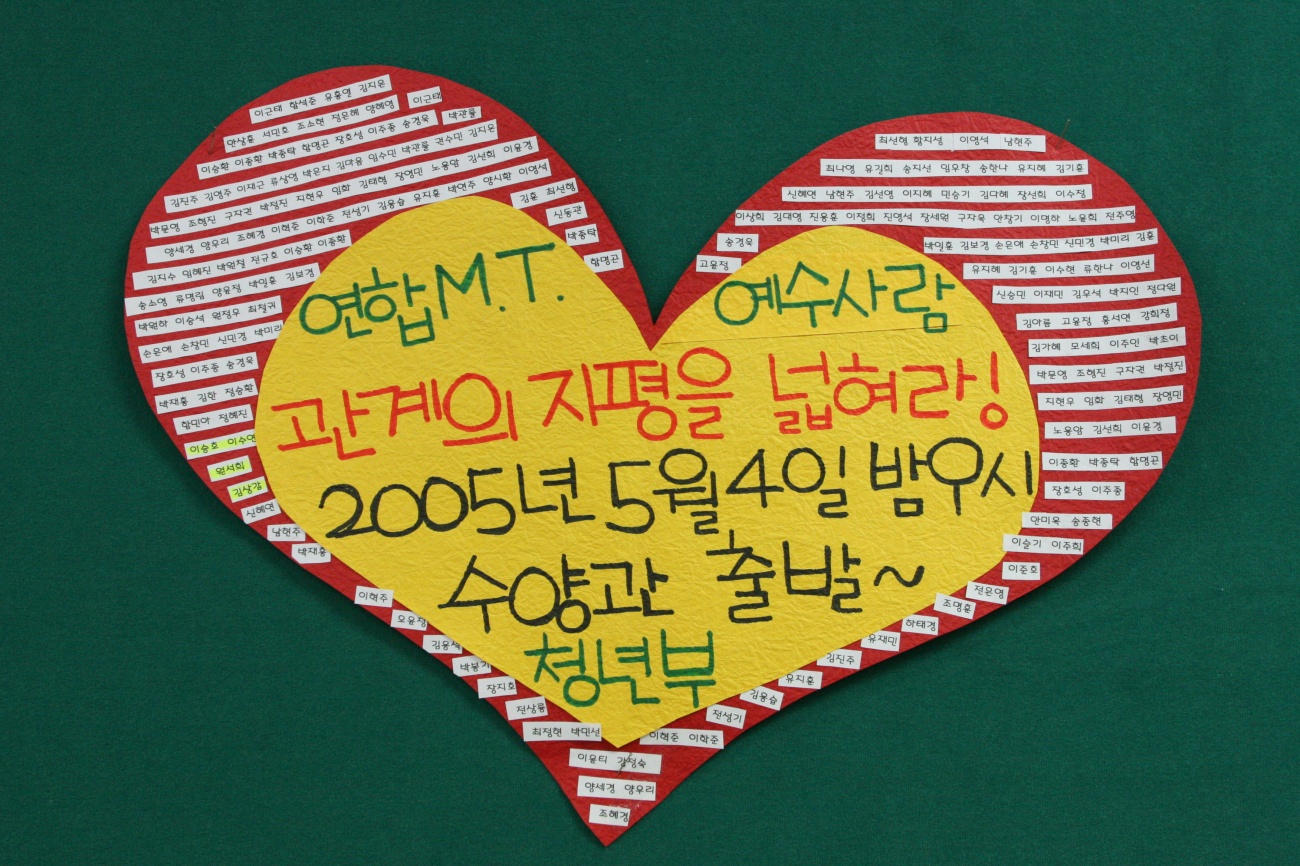 이근태 함석준 유홍연 김지은
안상훈 서민호 조소현 정은혜 양혜영 이근태
이승환 이종환 박종탁 함명곤 장호성 이주종 송경욱 박관률
김진주 김영주 이재근 류상영 박은지 김마음 임수민 박관률 권수민 김지은
박문영 조형진 구자권 박정진 지현우 임화 김태형 장영민 노용암 김선희 이윤경
양세경 양우리 조혜경 이혁준 이학준 전성기 김용습 유지훈 박연주 양시환 이영석
김지수 임혜진 박원절 전규호 이승환 이종환
김훈 최선형
신동관
박종탁
함명곤
송소영 류명림 양윤정 박임훈 김보경
박원하 이승석 원정우 최정귀
손은애 손창민 신민경 박미리
장호성 이주종 송경욱
박재홍 김한 정승환
함민아 정혜진
이승호 이수연
원서희
김상감
신혜연
남현주
박재홍
이혁주
오윤정
김용석
박봉기
장지호
전상률
최정현 박민선
최선형 함지성 이영석 남현주
최나영 유김희 송지선 임우창 송한나 유지혜 김기훈
신혜연 남현주 김선영 이지혜 민승기 김다혜 장선희 이수정
이상희 김대영 진용훈 이정희 진영석 장세원 구자욱 안창기 이명하 노윤희 전주영
송경욱
고윤정
박임훈 김보경 손은애 손창민 신민경 박미리 김훈
유지혜 김기훈 이수현 류한나 이영선
신승민 이재민 김우석 박지민 정다원
김아름 고윤정 홍서연 강희정
김가혜 모세희 이주인 박초이
박문영 조형진 구자권 박정진
지현우 임화 김태형 장영민
노용암 김선희 이윤경
이종환 박종탁 함명곤
장호성 이주종
안미옥 송종현
이슬기 이주희
이준호
전은영
조명훈
하태경
유재민
김진주
유지훈
김용습
전성기
이혁준 이학준
이윤티 김정숙
양세경 양우리
조혜경
연합 M.T. 예수사람
관계의 지평을 넓혀라!
2005년 5월 4일 밤 9시
수양관 출발~
청년부